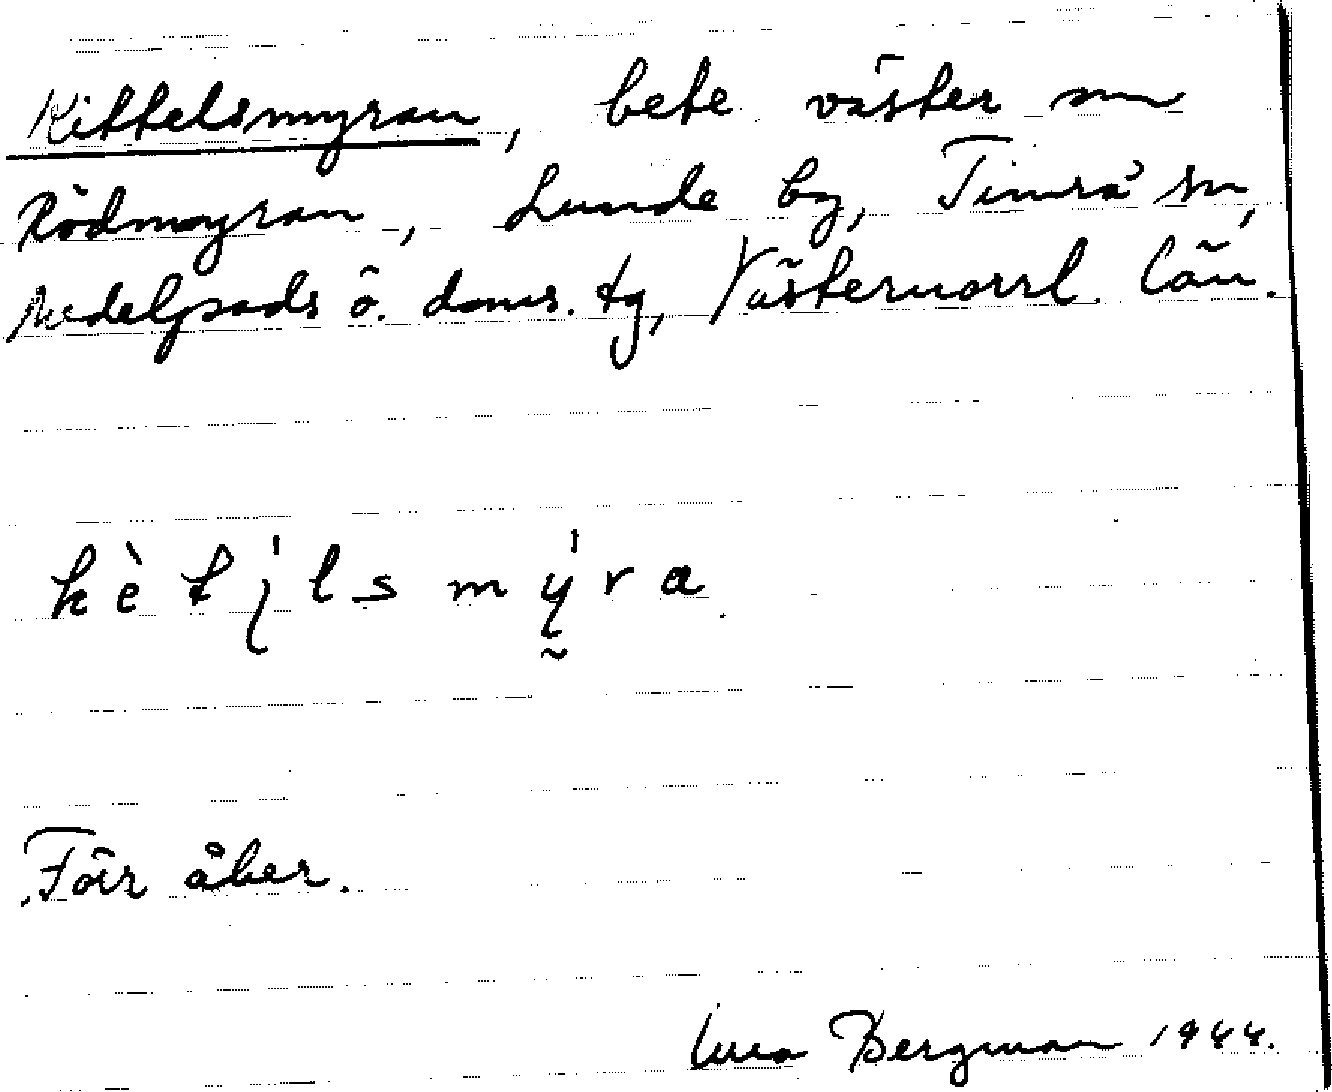 Kittelsmyran, bete väster om
Rödmyran, Lunde by, Timrå sn,
Medelpads ö. doms. tg, Västernorrl. län.
kètịlsmyra
Förr åker.
Bergman 1944.